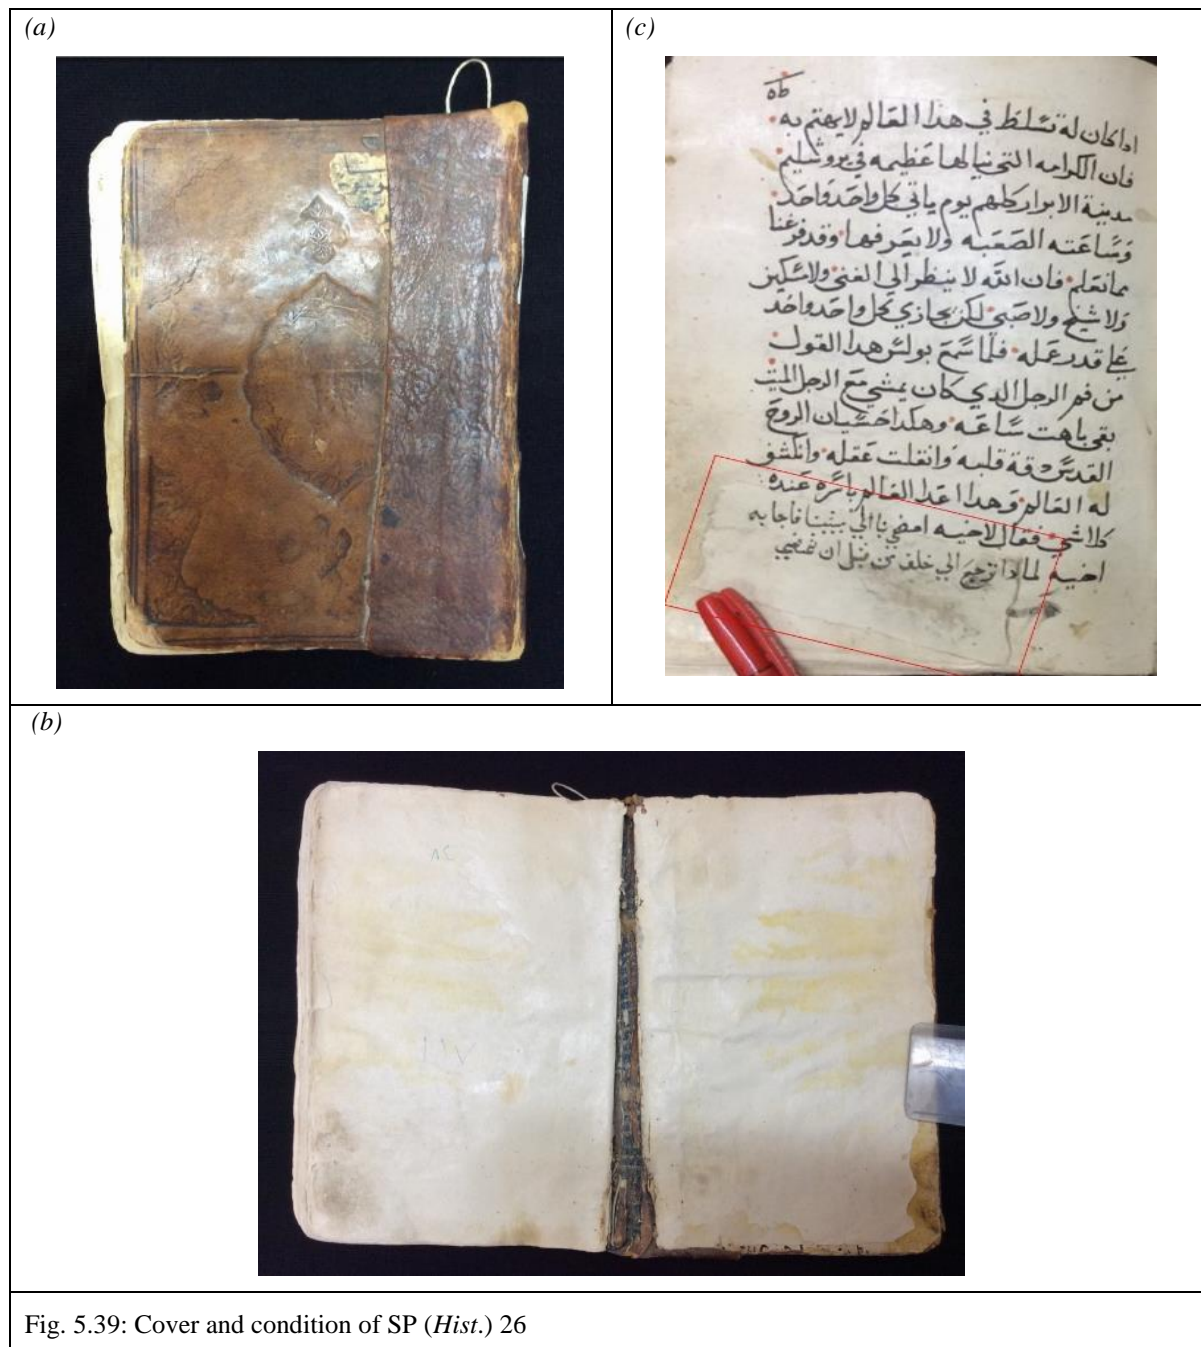 (a)
(c)
اداكان له تسلط في هدا العالم لايهتم به
فان الكرامه التي نيالها عظيمه في يروشليم
مدينة الابرار كلهم يوم ياتي كل واحد واحد
وساعته الصعبه ولا يعرفها وقد فرغنا
مانعلم فان الله لا ينظر الى الغني ولا
ولا شيخ ولا صبي لكن يجازي كل واحد واحد
علي قدر عمله فلما سمع بولس هدا القول
من فم الرجل الدي كان يمشي مع الرجل الميت
بقي باهت ساعه وهكدا الروح
القدس قلبه وانفلت عقله وانكشف
له العالم وهدا العالم باسره عنده
كلاشي فقال لاخيه امضي بنا الي بيتنا فاجابه
اخيه لمادا ترجع الي خلف من قبل ان تمضي
(b)
٨٢
١١٧
Fig. 5.39: Cover and condition of SP (Hist.) 26